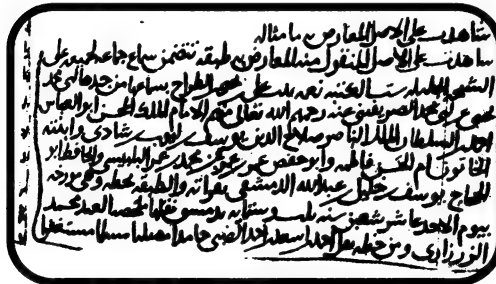 شاهدت على الاصل المعارض ما مثاله
شاهدت على الاصل المنقول منه المعارض طبقة تتضمن سماع جماعة لجميعه على
الشيخة الجليلة ست الكتبة نعمة بنت علي بن يحيى بن الطراح بسماعها من جدها ابي محمد
يحيى بن علي بن محمد الصريفيني عنه رحمه الله تعالى منهم الامام الملك المحسن ابو العباس
احمد بن السلطان الملك الناصر صلاح الدين يوسف بن ايوب بن شادي وابنته
الخاتون ام الحسن فاطمة وابو حفص عمر بن محمد بن عمر البلبيسي والحافظ ابو
الحجاج يوسف بن خليل بن عبد الله الدمشقي بقراءته والطبقة بخطه وهي مؤرخة
بيوم الاحد عاشر شعبن سنة ست وستمائة بدمشق نقلها مختصا العبد محمد
ومن خطه نقل احمد بن اسعد احمد حامدا مصليا مسلما مستغفرا